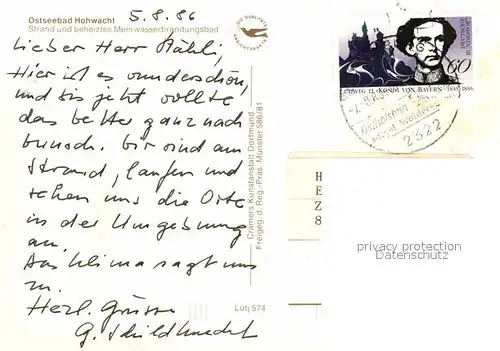 Ostseebad Hohwacht
Strand und beheiztes Meerwasserbrandungsbad
5.8.86
DIE QUALITÄTS
ANSICHTSKARTE
Lieber Herr Mähli,
Hier ist es wunderschön,
und bis jetzt wollte
das Wetter ganz nach
Wunsch. Wir sind am
Strand, laufen und
sehen uns die Orte
in der Umgebung
an.
Das Klima sagt uns
zu.
Herzl. Grüsse
G. Schildknecht
Cramers Kunstanstalt Dortmund
Freigeg. d. Reg.-Präs. Münster 586/81
Lütj 574
DEUTSCHE BUNDESPOST
60
LUDWIG II. KÖNIG VON BAYERN 1845-1886
2322
H
E
Z
8
privacy protection
Datenschutz